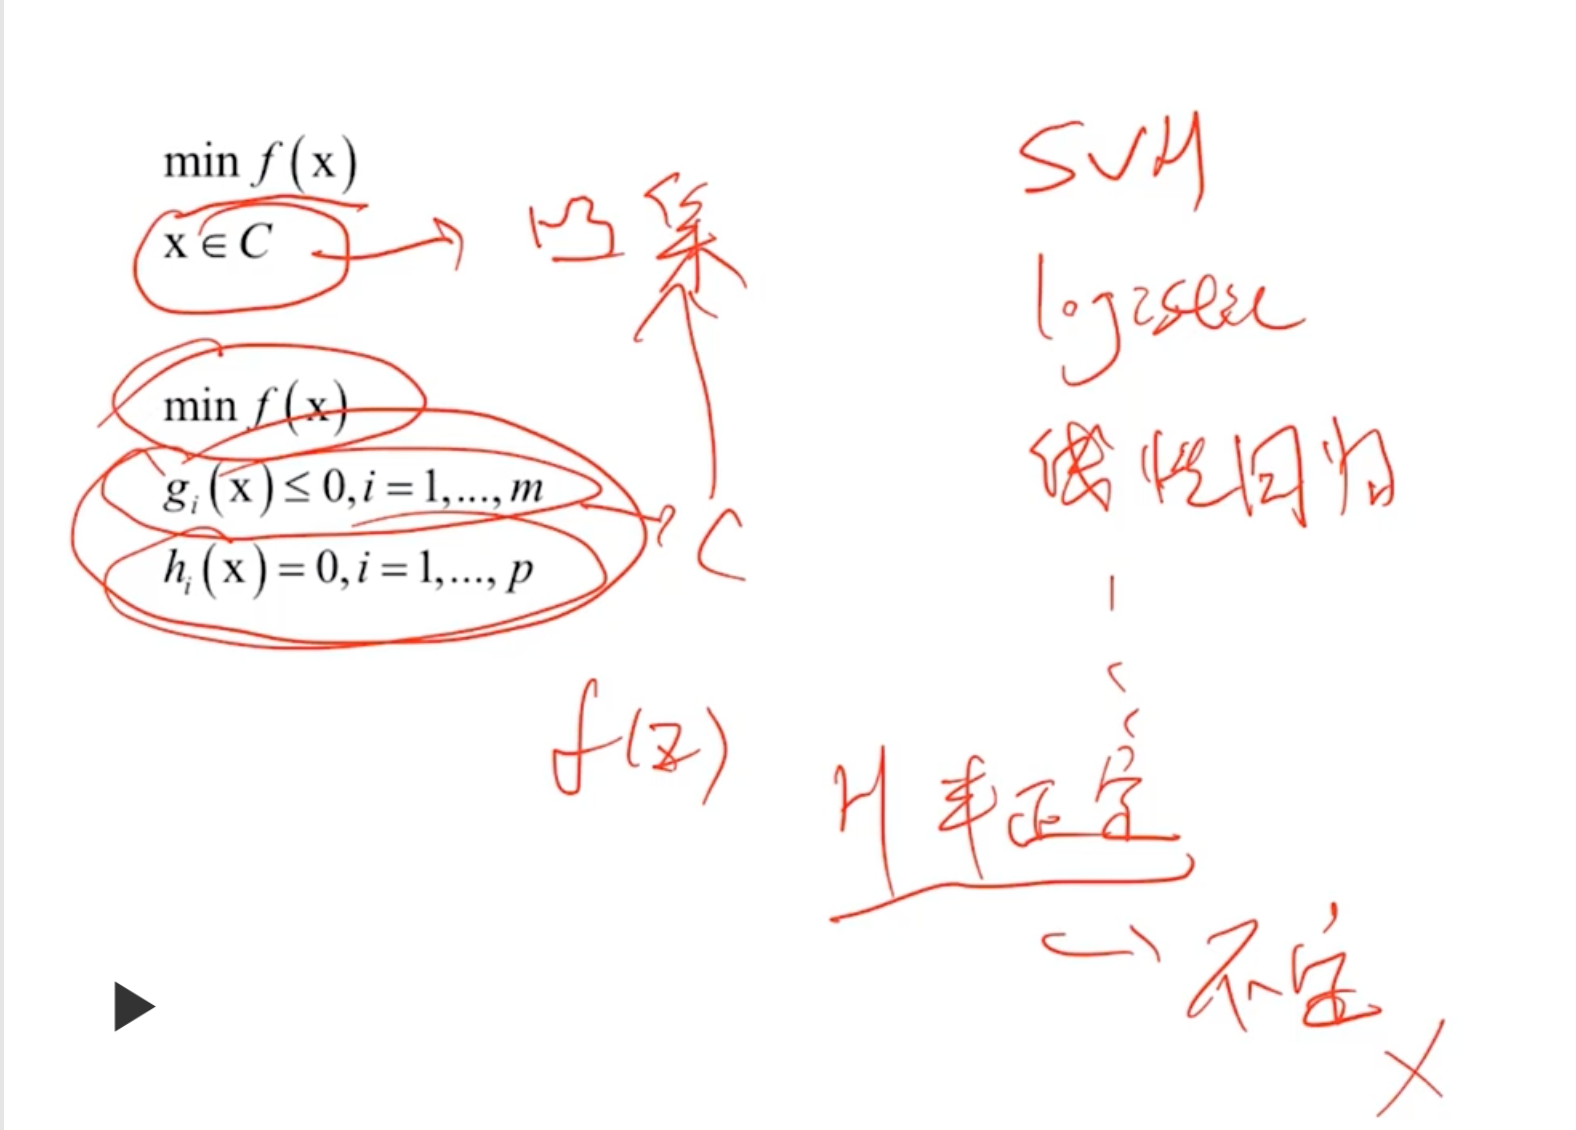 min f(x)
x ∈ C
凸集
min f(x)
g_i(x) ≤ 0, i = 1,..., m
h_i(x) = 0, i = 1,..., p
C
f(x)
SVM
logistic
线性回归
H 半正定
不定